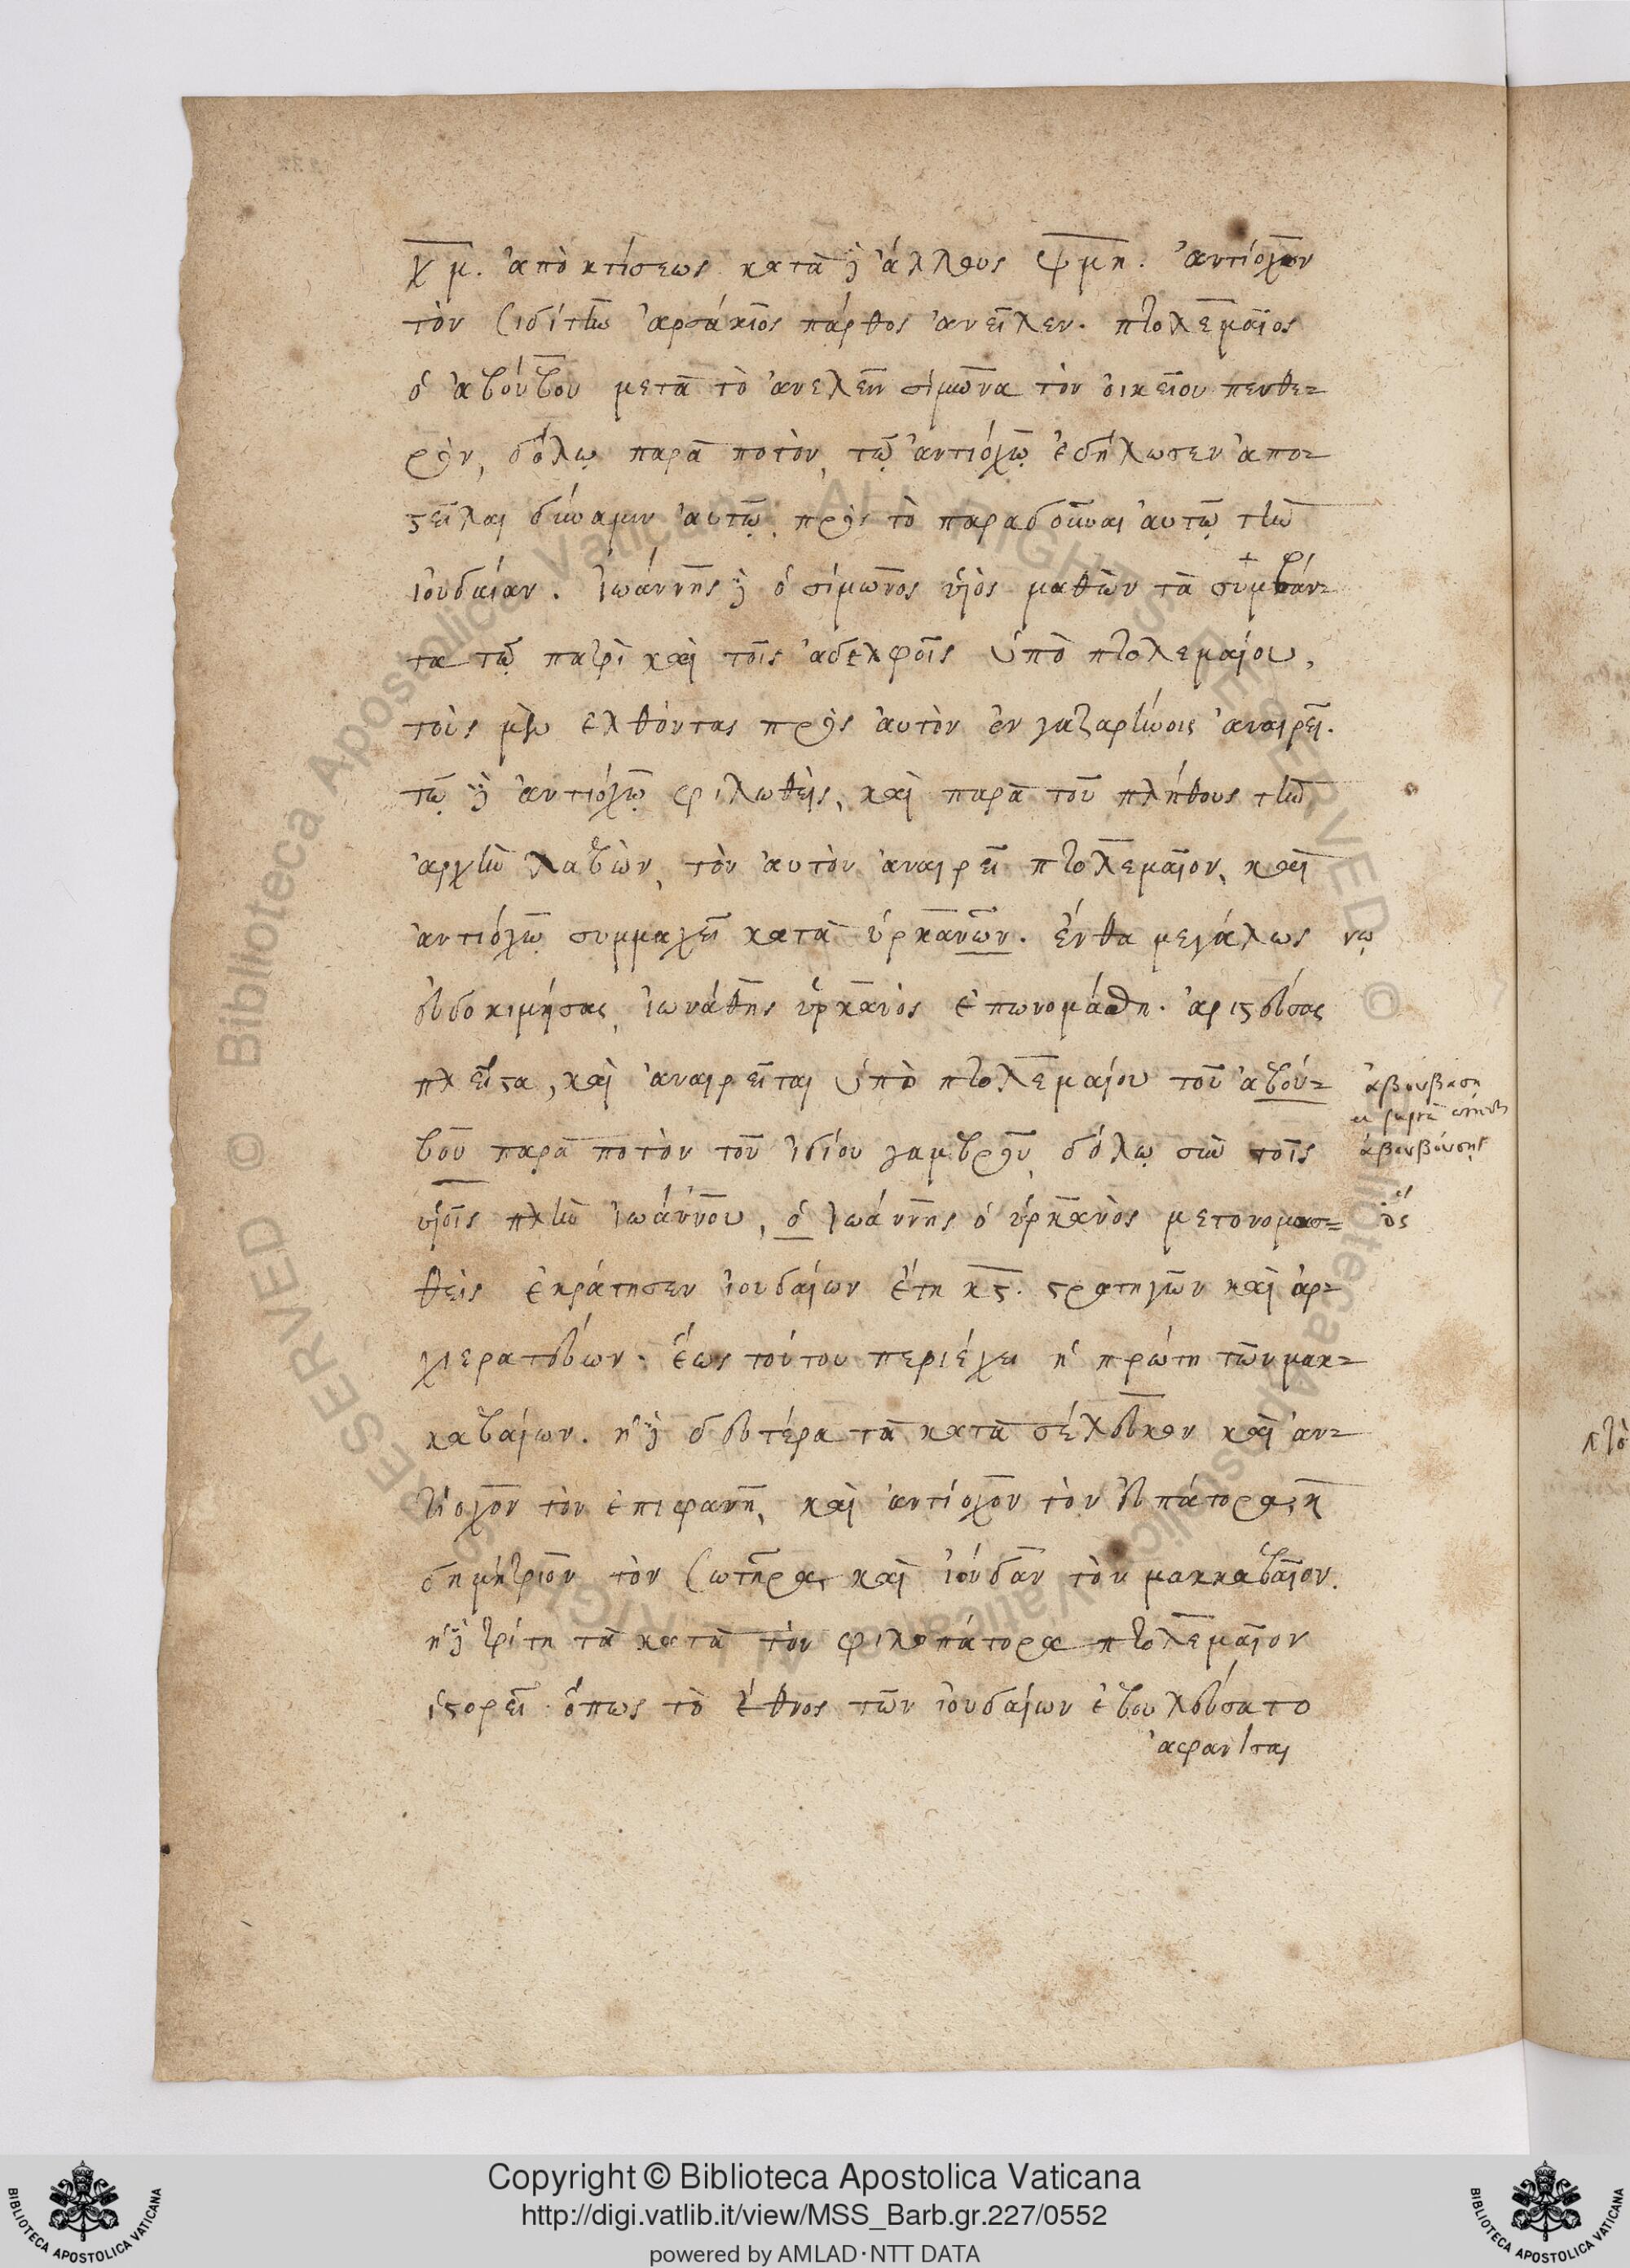 χ̅μ̅. ἀπὸ κτίσεως κατὰ δὲ ἄλλους ψ̅μ̅η̅. ἀντίοχον
τὸν Σιδίτην ἀρσάκιος πάρθος ἀνεῖλεν. πτολεμαῖος
ὁ ἀβούβου μετὰ τὸ ἀνελεῖν σίμωνα τὸν οἰκεῖον πενθε-
ρὸν, δόλῳ παρὰ ποτὸν, τῷ ἀντιόχῳ ἐδήλωσεν ἀπο-
στεῖλαι δύναμιν αὐτῷ, πρὸς τὸ παραδοῦναι αὐτῷ τὴν
ἰουδαίαν. Ἰωάννης δὲ ὁ σίμωνος υἱὸς μαθὼν τὰ συμβάν-
τα τῷ πατρὶ καὶ τοῖς ἀδελφοῖς ὑπὸ πτολεμαίου,
τοὺς μὲν ἐλθόντας πρὸς αὐτὸν ἐν γαζαρηνοῖς ἀναιρεῖ.
τῷ δὲ ἀντιόχῳ φιλωθεὶς, καὶ παρὰ τοῦ πλήθους τὴν
ἀρχὴν λαβὼν, τὸν αὐτὸν ἀναιρεῖ πτολεμαῖον, καὶ
ἀντιόχῳ συμμαχεῖ κατὰ ὑρκανῶν. ἔνθα μεγάλως
εὐδοκιμήσας, ἰωνάθης ὑρκανὸς ἐπωνομάσθη. ἀριστεύσας
πλεῖστα, καὶ ἀναιρεῖται ὑπὸ πτολεμαίου τοῦ ἀβού-
βου παρὰ ποτὸν τοῦ ἰδίου γαμβροῦ, δόλῳ σὺν τοῖς
υἱοῖς πλὴν Ἰωάννου, ὁ Ἰωάννης ὁ ὑρκανὸς μετονομασ-
θεὶς ἐκράτησεν ἰουδαίων ἔτη κ̅ϛ̅. στρατηγῶν καὶ ἀρ-
χιερατεύων. ἕως τούτου περιέχει ἡ πρώτη τῶν μακ-
καβαίων. ἡ δὲ δευτέρα τὰ κατὰ σέλευκον καὶ ἀν-
τίοχον τὸν ἐπιφανῆ, καὶ ἀντίοχον τὸν εὐπάτορα, κ̀
δημήτριον τὸν Σωτῆρα, καὶ ἰούδαν τὸν μακκαβαῖον.
ἡ δὲ τρίτη τὰ κατὰ τὸν φιλοπάτορα πτολεμαῖον
ἱστορεῖ· ὅπως τὸ ἔθνος τῶν ἰουδαίων ἐβουλεύσατο
ἀφανίσαι
νῷ
ἀβουβαση
ἀβουβούσης
ὃς
Copyright © Biblioteca Apostolica Vaticana
http://digi.vatlib.it/view/MSS_Barb.gr.227/0552
powered by AMLAD·NTT DATA
BIBLIOTECA APOSTOLICA VATICANA
BIBLIOTECA APOSTOLICA VATICANA